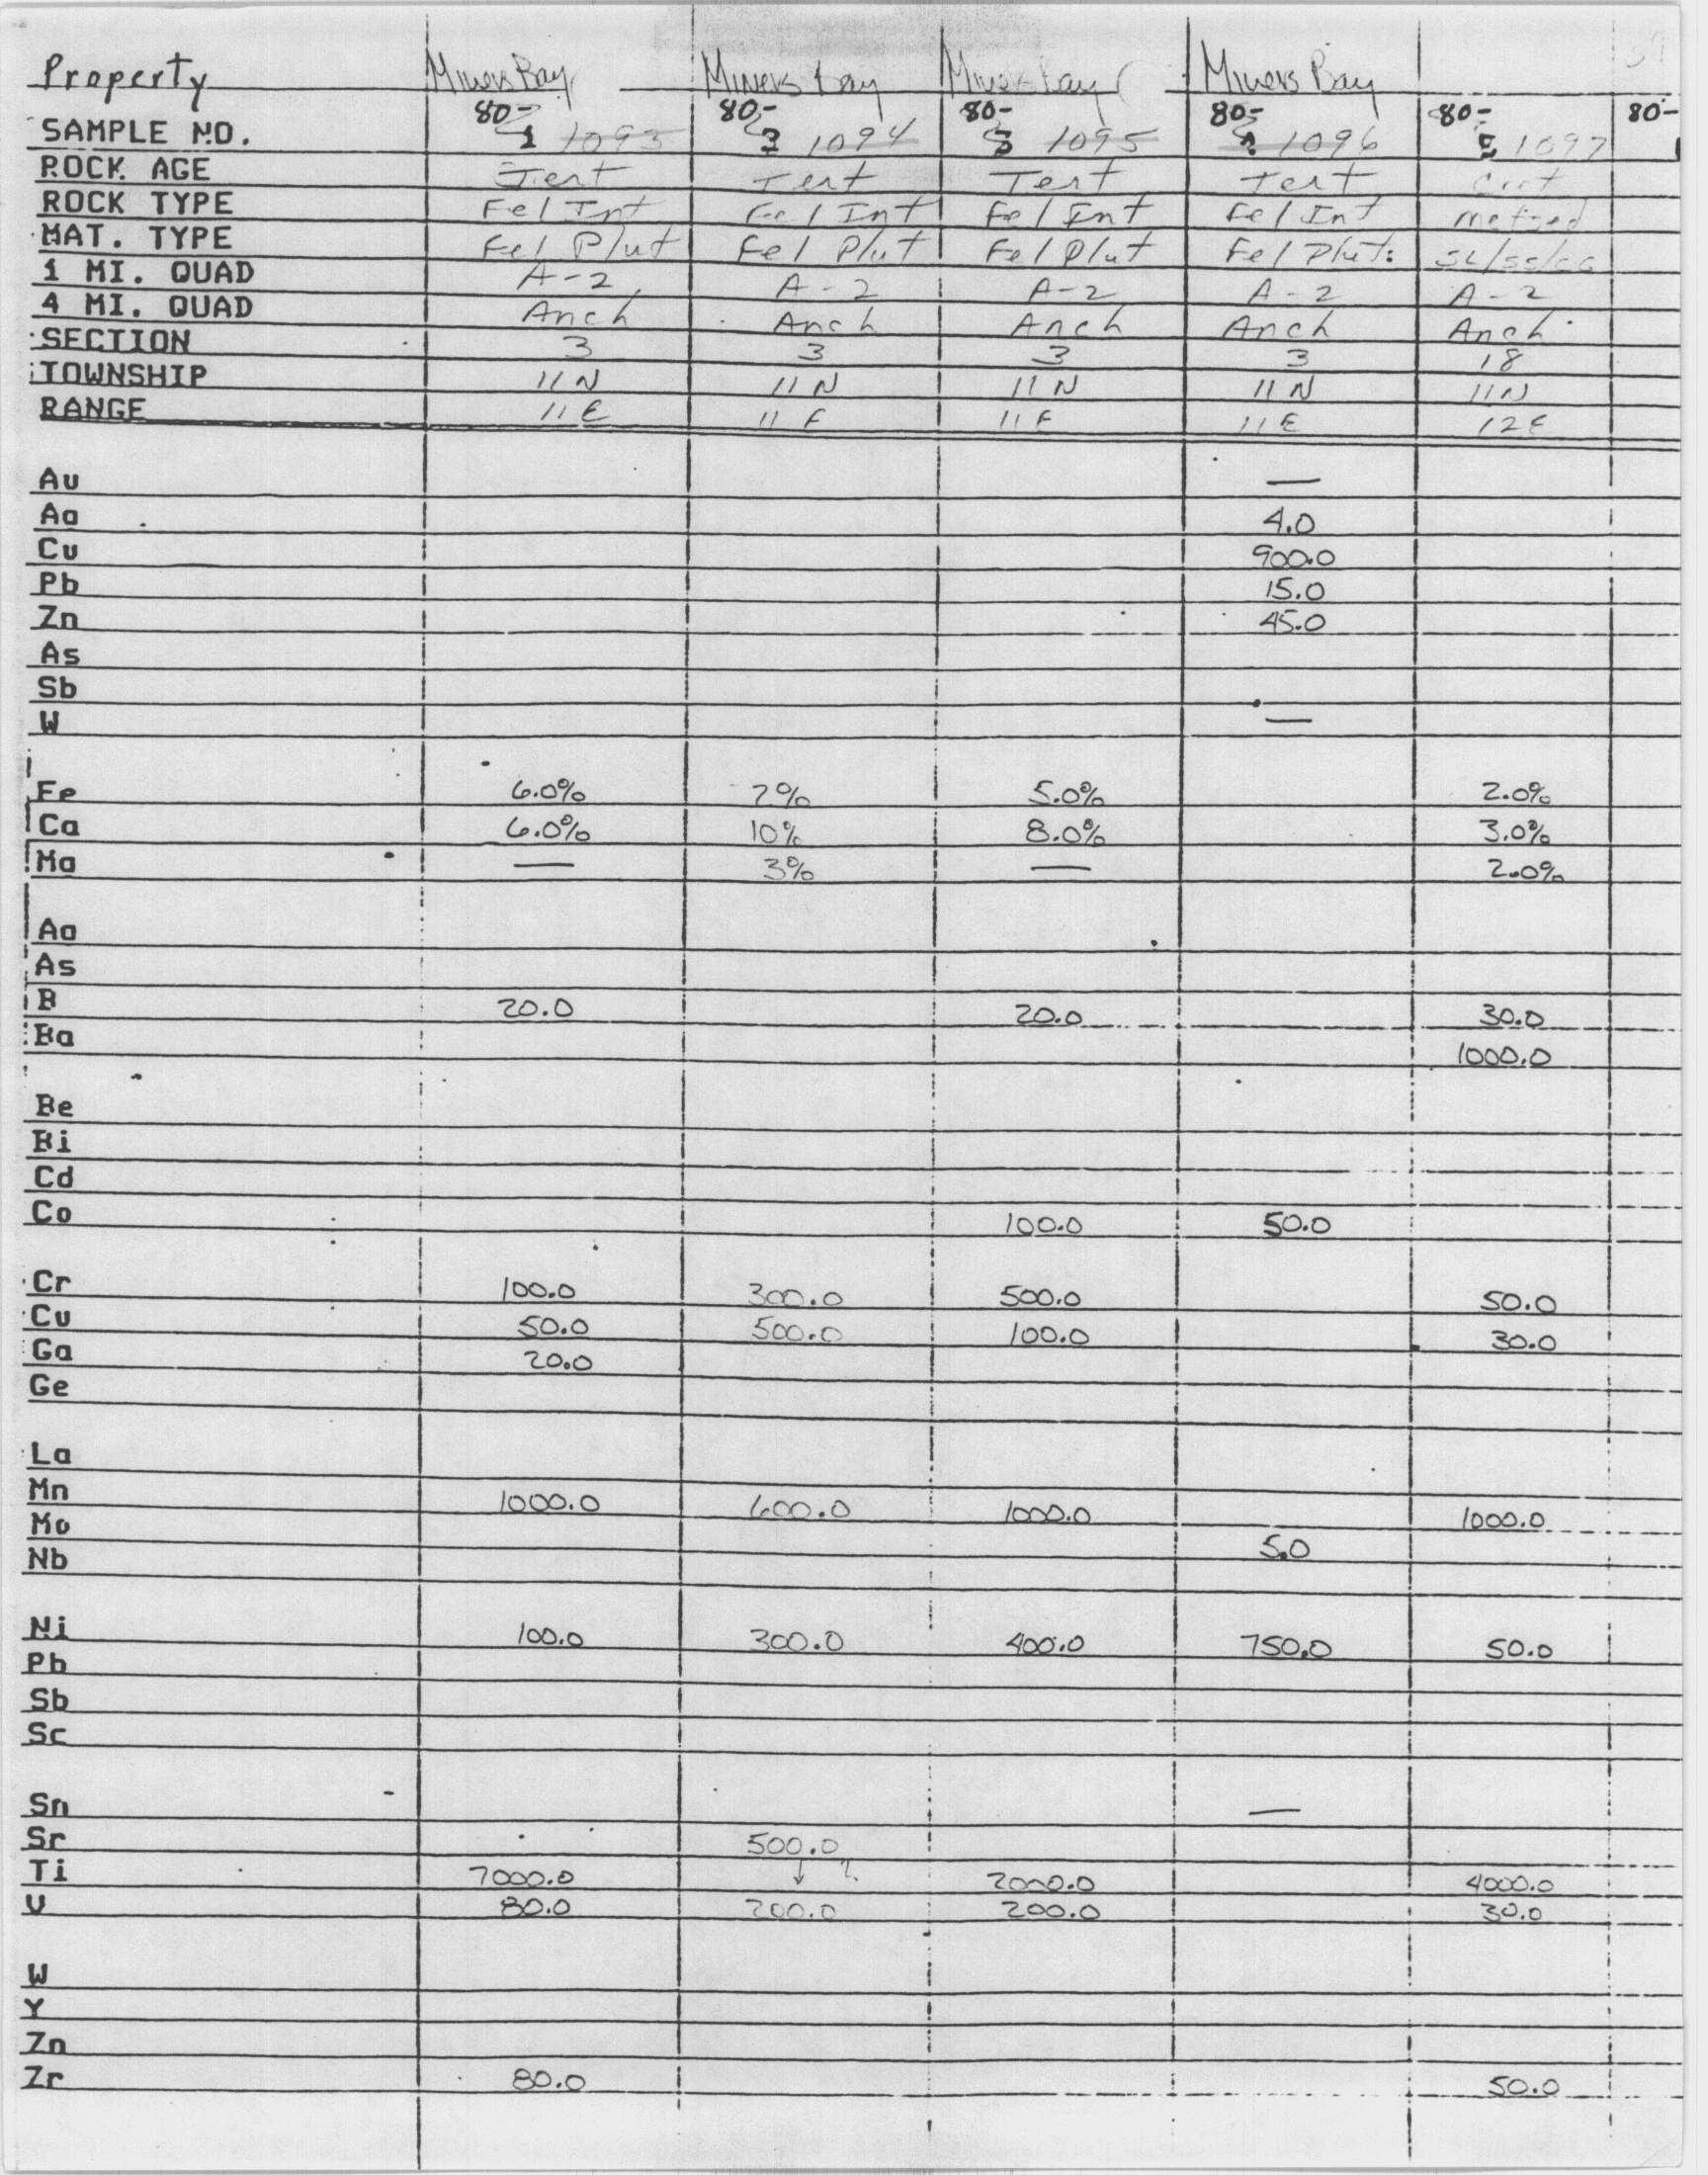 Property Miners Bay Miners Bay Miners Bay Miners Bay
80- 80- 80- 80- 80- 80-
SAMPLE NO. 1 1093 1094 1095 1096 1097
ROCK AGE Tert Tert Tert Tert
ROCK TYPE Fel Int Fel Int Fel Int Fel Int metsed
MAT. TYPE Fel Plut Fel Plut Fel Plut Fel Plut.
1 MI. QUAD A-2 A-2 A-2 A-2 A-2
4 MI. QUAD Anch Anch Anch Anch Anch
SECTION 3 3 3 3 18
TOWNSHIP 11N 11N 11N 11N 11N
RANGE 11E 11E 11E 11E 12E
Au —
Ag 4.0
Cu 900.0
Pb 15.0
Zn 45.0
As
Sb
W —
Fe 6.0% 7% 5.0% 2.0%
Ca 6.0% 10% 8.0% 3.0%
Mg — 3% — 2.0%
Ag
As
B 20.0 20.0 30.0
Ba 1000.0
Be
Bi
Cd
Co 100.0 50.0
Cr 100.0 300.0 500.0 50.0
Cu 50.0 500.0 100.0 30.0
Ga 20.0
Ge
La
Mn 1000.0 600.0 1000.0 1000.0
Mo 5.0
Nb
Ni 100.0 300.0 400.0 750.0 50.0
Pb
Sb
Sc
Sn —
Sr 500.0
Ti 7000.0 ↓ ? 2000.0 4000.0
V 80.0 200.0 200.0 30.0
W
Y
Zn
Zr 80.0 50.0